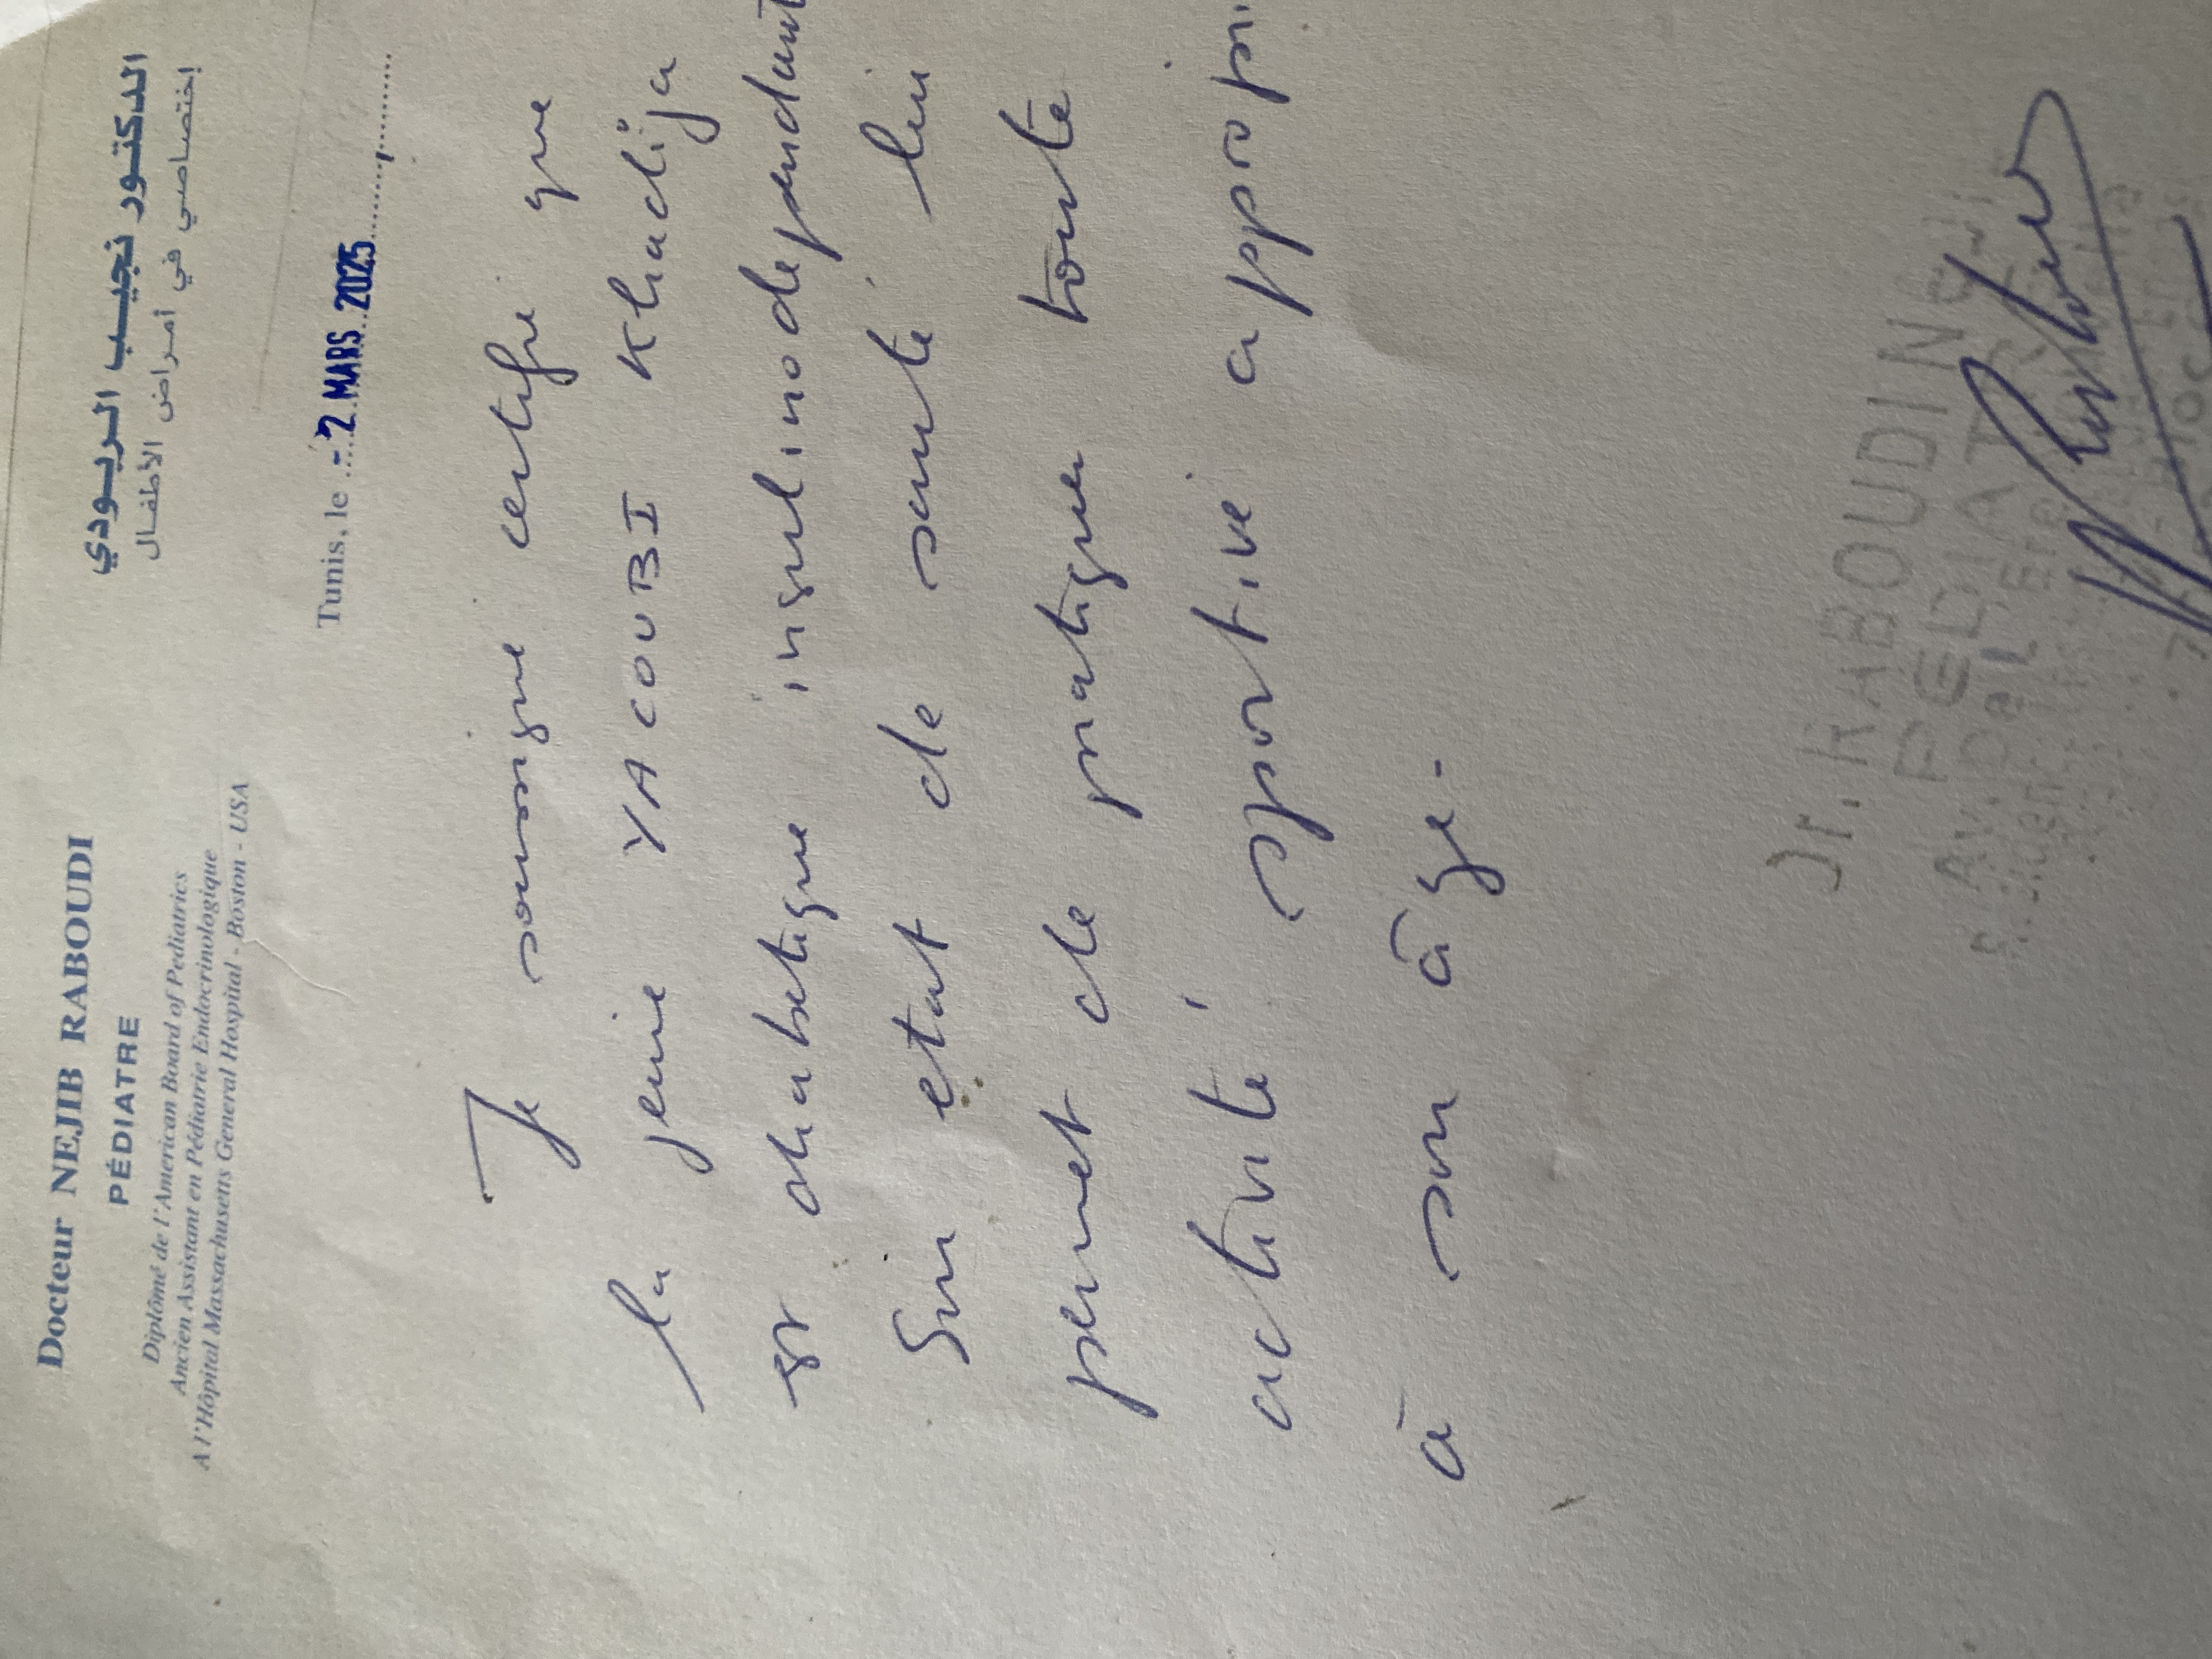 Docteur NEJIB RABOUDI
PÉDIATRE
Diplômé de l'American Board of Pediatrics
Ancien Assistant en Pédiatrie Endocrinologique
A l'Hôpital Massachusetts General Hospital - Boston - USA
الدكتور نجيب الربودي
إختصاصي في أمراض الأطفال
Tunis, le - 2 MARS 2025
Je soussigne certifie que
la jeune YACOUBI Khadija
est diabetique insulinodependant
Son etat de santé lui
permet de pratiquer toute
activité sportive appropri
à son âge.
Dr. RABOUDI Neji
PEDIATRE